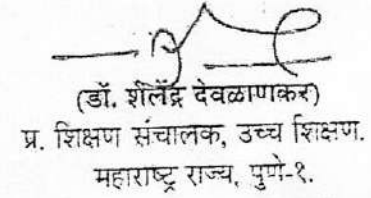 (डॉ. शैलेंद्र देवळाणकर)
प्र. शिक्षण संचालक, उच्च शिक्षण.
महाराष्ट्र राज्य, पुणे-१.